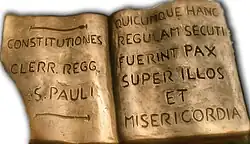 CONSTITUTIONES
CLERR. REGG.
S. PAULI
QUICUMQUE HANC
REGULAM SECUTI
FUERINT PAX
SUPER ILLOS
ET
MISERICORDIA